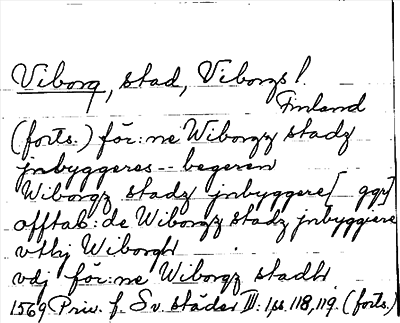 Viborg, stad, Viborgs l.
Finland
(forts.) för:ne Wiborgz stadz
jnbyggeres -- begeren
Wiborgz stadz jnbyggere[ ggr]
offtab:de Wiborgz stadz jnbyggiere
vtly Wiborgh
vdj för:ne Wiborgz stadh
1569 Priv. f. Sv. städer III: 118, 119. (forts.)